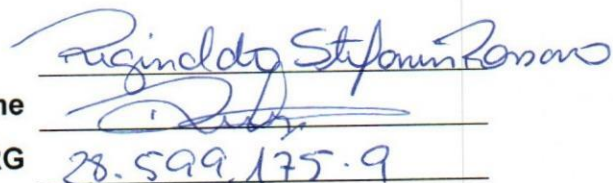 Reginaldo Stefanin Rossano
me
RG 28.599.175-9